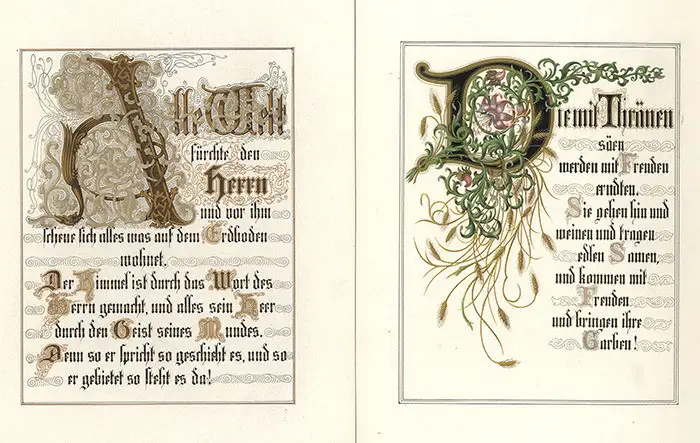 Alle Welt
fürchte den
Herrn
und vor ihm
scheue sich alles was auf dem Erdboden
wohnet.
Der Himmel ist durch das Wort des
Herrn gemacht, und alles sein Heer
durch den Geist seines Mundes.
Denn so er spricht so geschieht es, und so
er gebietet so steht es da!
Die mit Thränen
säen
werden mit Freuden
erndten.
Sie gehen hin und
weinen und tragen
edlen Samen,
und kommen mit
Freuden
und bringen ihre
Garben!